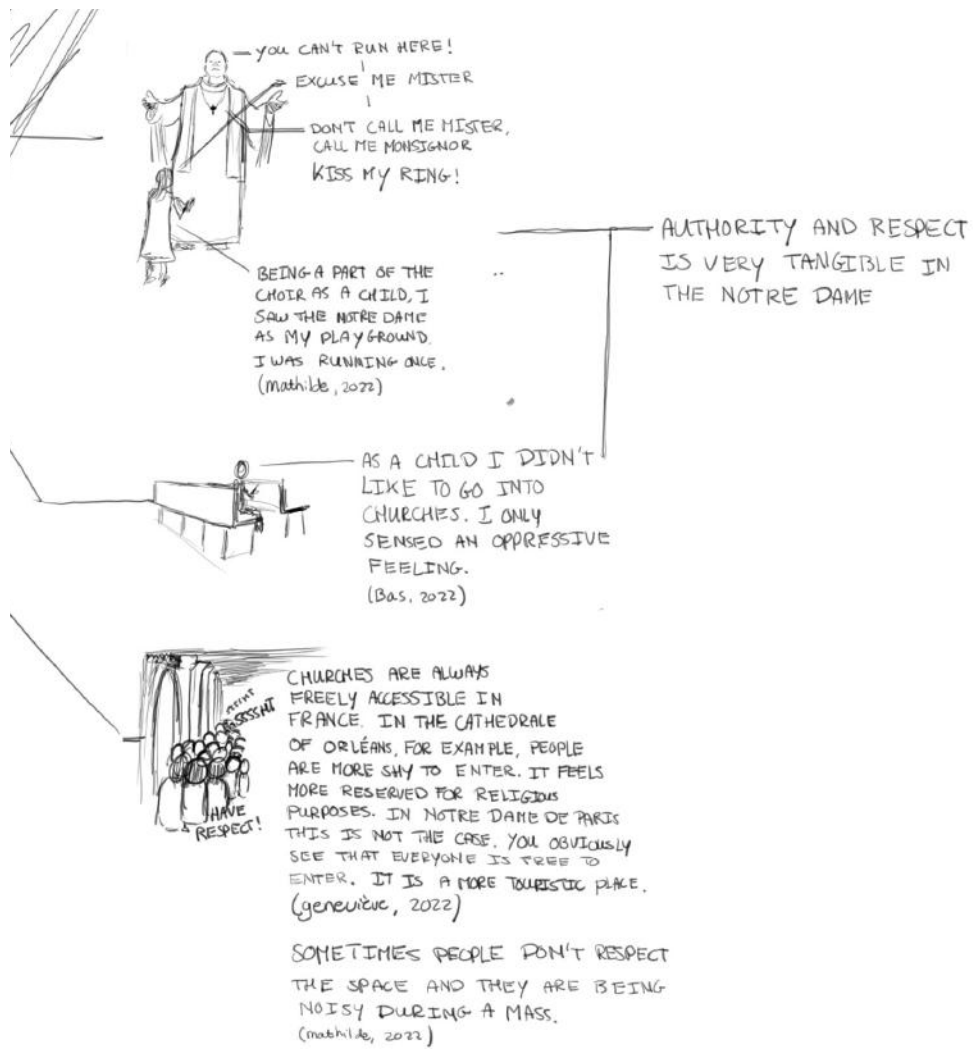 YOU CAN'T RUN HERE!
EXCUSE ME MISTER
DON'T CALL ME MISTER,
CALL ME MONSIGNOR
KISS MY RING!
BEING A PART OF THE
CHOIR AS A CHILD, I
SAW THE NOTRE DAME
AS MY PLAYGROUND.
I WAS RUNNING ONCE.
(mathilde, 2022)
AUTHORITY AND RESPECT
IS VERY TANGIBLE IN
THE NOTRE DAME
AS A CHILD I DIDN'T
LIKE TO GO INTO
CHURCHES. I ONLY
SENSED AN OPPRESSIVE
FEELING.
(Bas, 2022)
HAVE
RESPECT!
CHURCHES ARE ALWAYS
FREELY ACCESSIBLE IN
FRANCE. IN THE CATHEDRALE
OF ORLÉANS, FOR EXAMPLE, PEOPLE
ARE MORE SHY TO ENTER. IT FEELS
MORE RESERVED FOR RELIGIOUS
PURPOSES. IN NOTRE DAME DE PARIS
THIS IS NOT THE CASE. YOU OBVIOUSLY
SEE THAT EVERYONE IS FREE TO
ENTER. IT IS A MORE TOURISTIC PLACE.
(geneviève, 2022)
SOMETIMES PEOPLE DON'T RESPECT
THE SPACE AND THEY ARE BEING
NOISY DURING A MASS.
(mathilde, 2022)